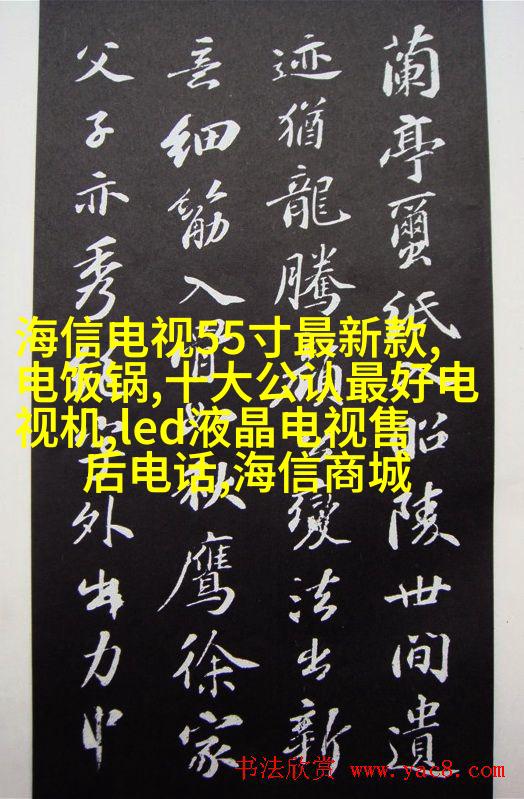 蘭亭蠒紙入昭陵世間遺
迹猶龍騰顏公變法出新
意細筋入骨如秋鷹徐家
父子亦秀絶字外出力中
海信电视55寸最新款,
电饭锅,十大公认最好电
视机,led液晶电视售
后电话,海信商城
书法欣赏 www.yac8.com